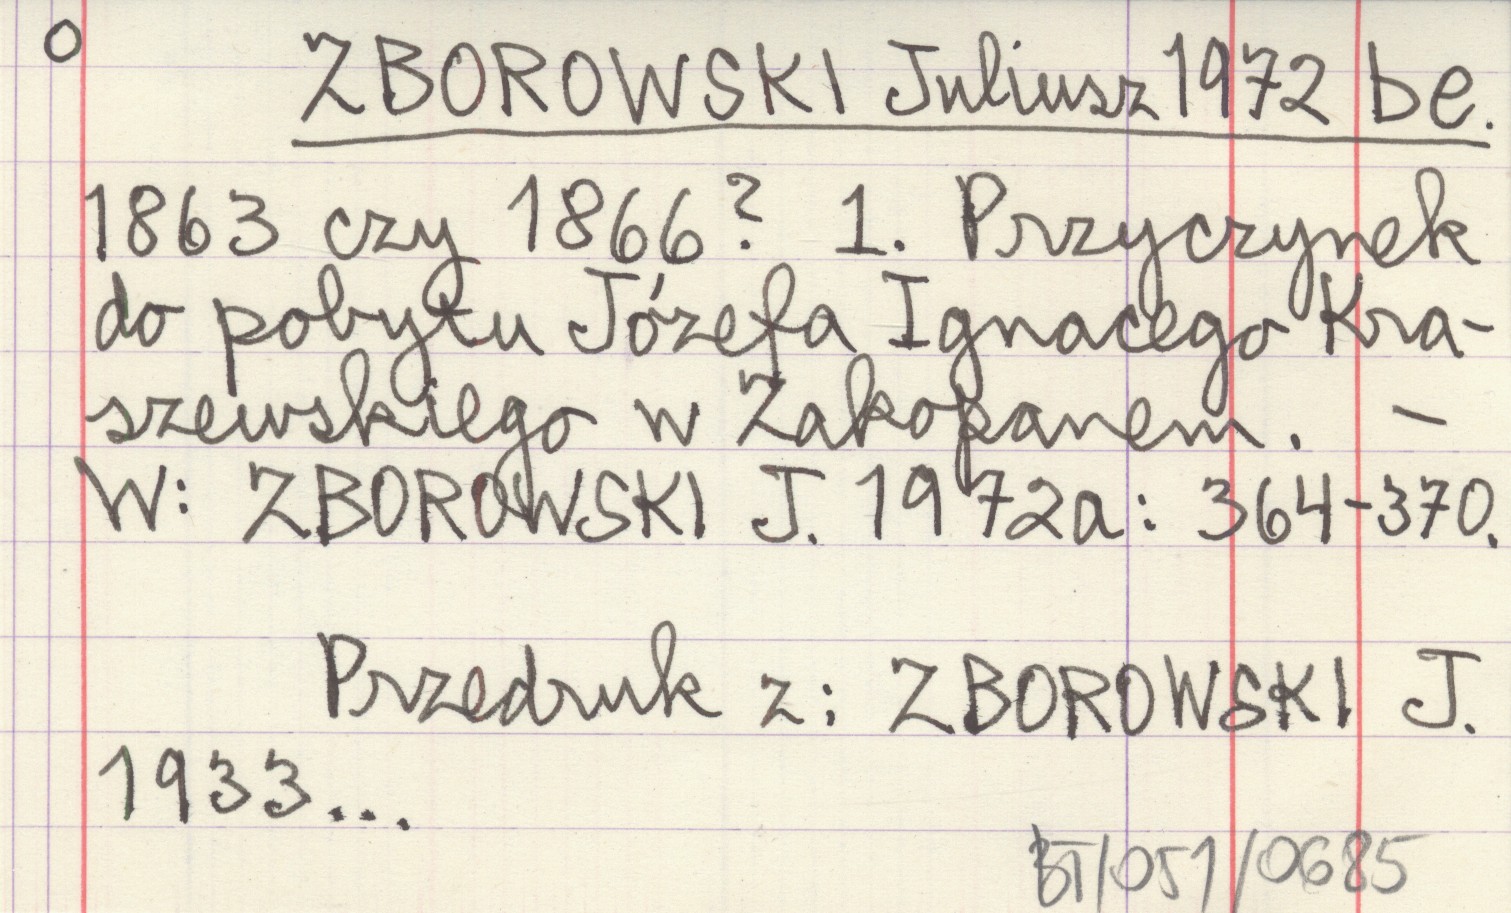 O ZBOROWSKI Juliusz 1972 be.
1863 czy 1866? 1. Przyczynek
do pobytu Józefa Ignacego Kra-
szewskiego w Zakopanem. –
W: ZBOROWSKI J. 1972a: 364-370.
Przedruk z: ZBOROWSKI J.
1933...
BT/051/0685